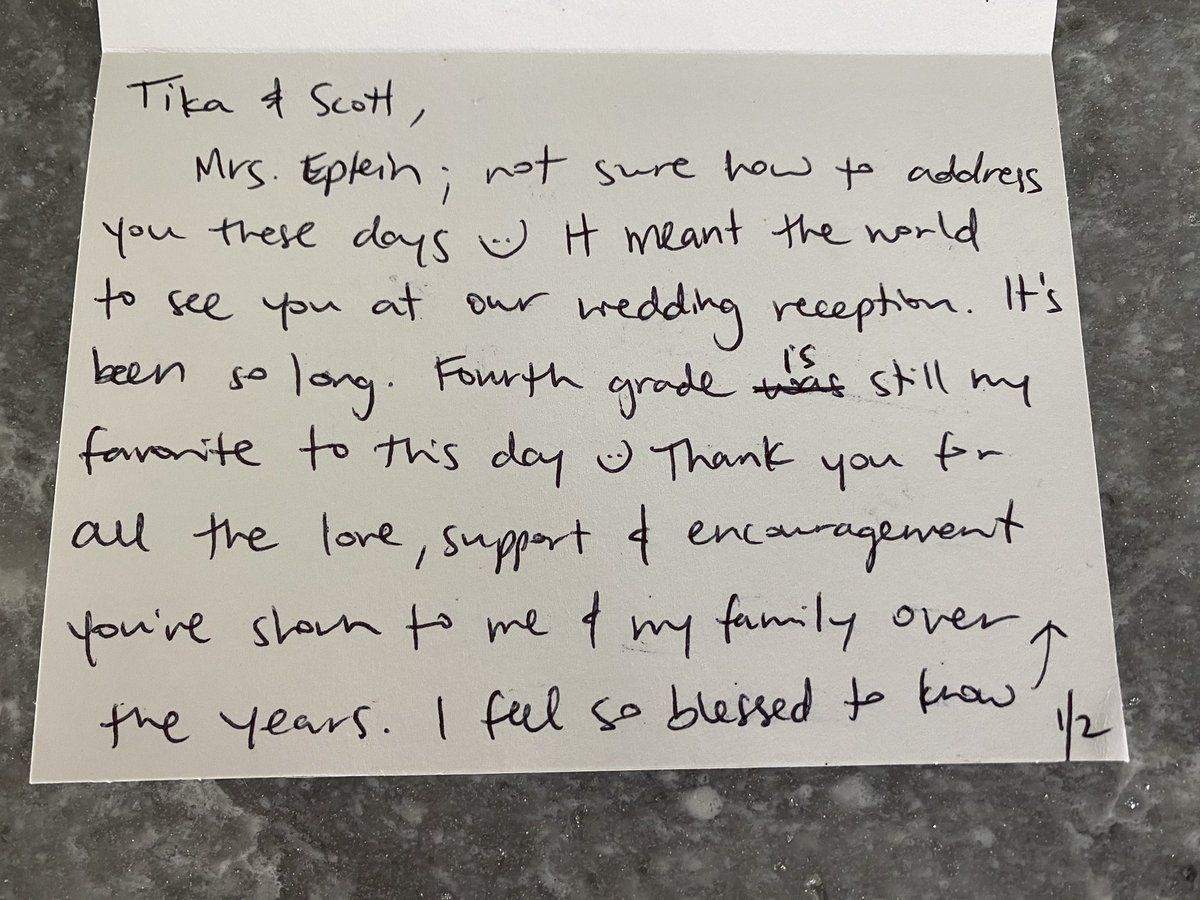 Tika & Scott,
Mrs. Eptein; not sure how to address
you these days :) It meant the world
to see you at our wedding reception. It's
been so long. Fourth grade is still my
favorite to this day :) Thank you for
all the love, support & encouragement
you've shown to me & my family over
the years. I feel so blessed to know
1/2